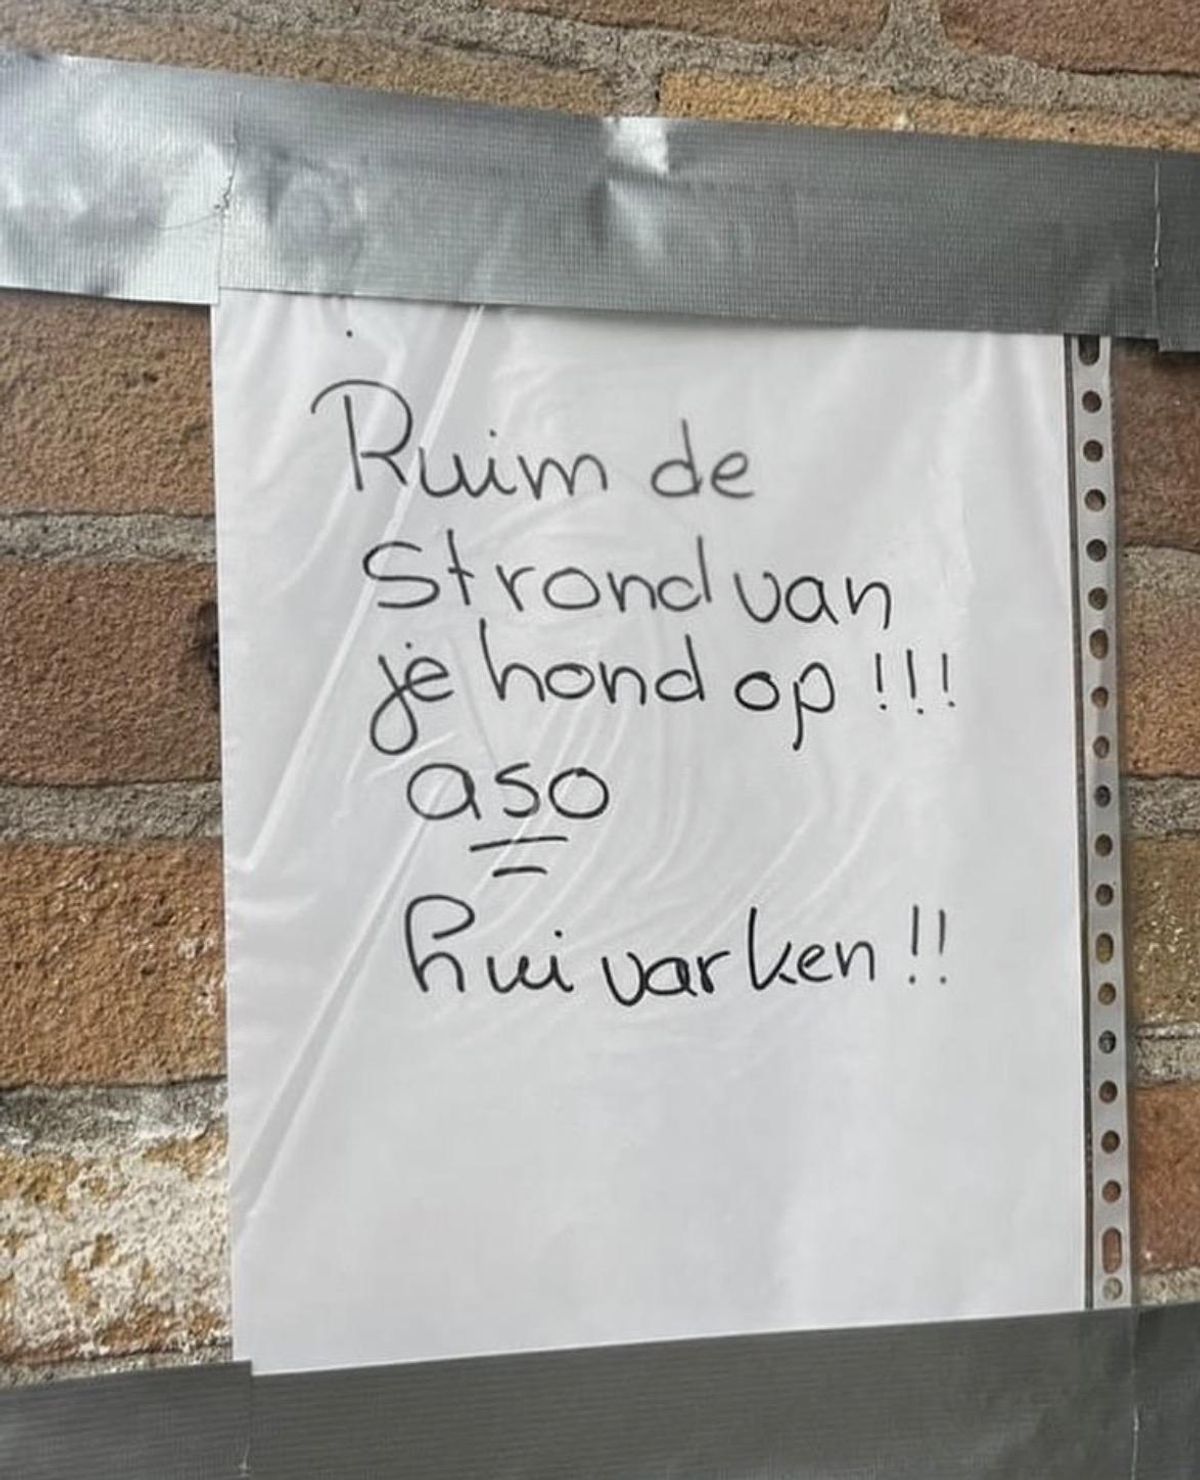 Ruim de
Strond van
je hond op !!!
aso
hui varken !!